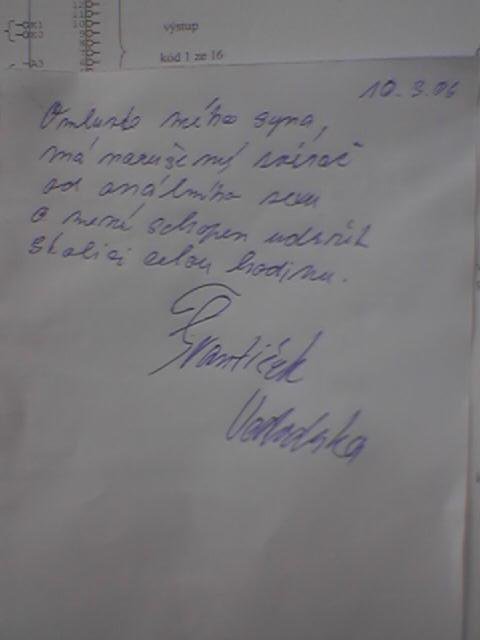 výstup
kód 1 ze 16
10.3.06
Omluvte mého syna,
má narušený svěrač
od análního sexu
a není schopen udržet
stolici celou hodinu.
František